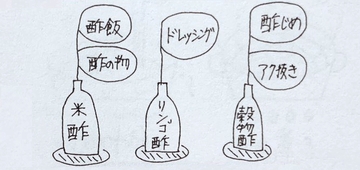 酢飯
酢の物
米酢
ドレッシング
リンゴ酢
酢じめ
アク抜き
穀物酢